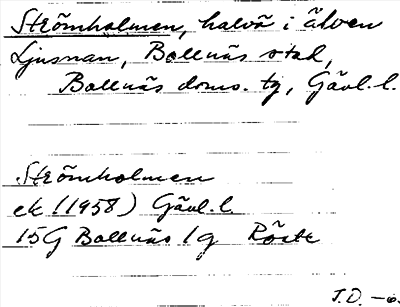 Strömholmen, halvö i älven
Ljusnan, Bollnäs stad,
Bollnäs doms. tg, Gävl. l.
Strömholmen
ek (1958) Gävl. l.
15G Bollnäs 1g Röste
J.D. -6.